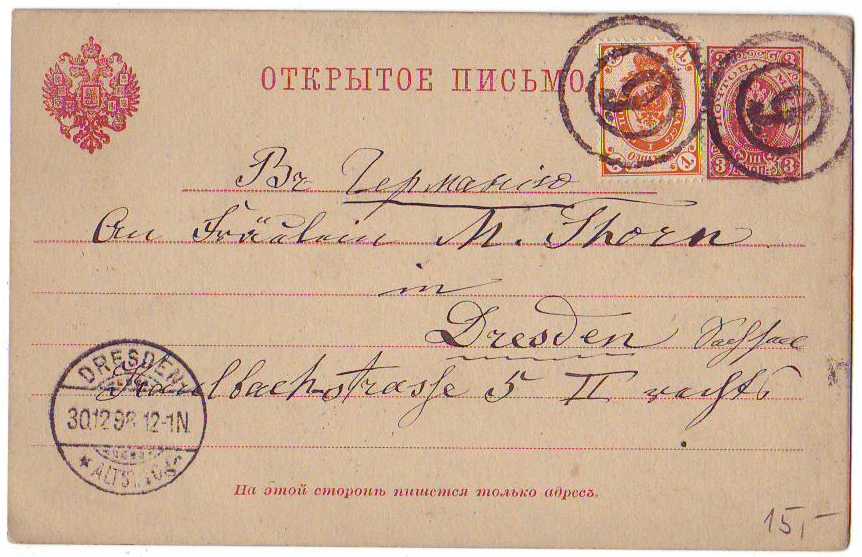 ОТКРЫТОЕ ПИСЬМО.
Въ Германію
An Fräulein M. Thorn
in
Dresden Sachsen
Kaulbach-strasse 5 II rechts
DRESDEN
30.12.98.12-1N.
* ALTST.
На этой сторонѣ пишется только адресъ.
15,-
3
3
3
1
1
1